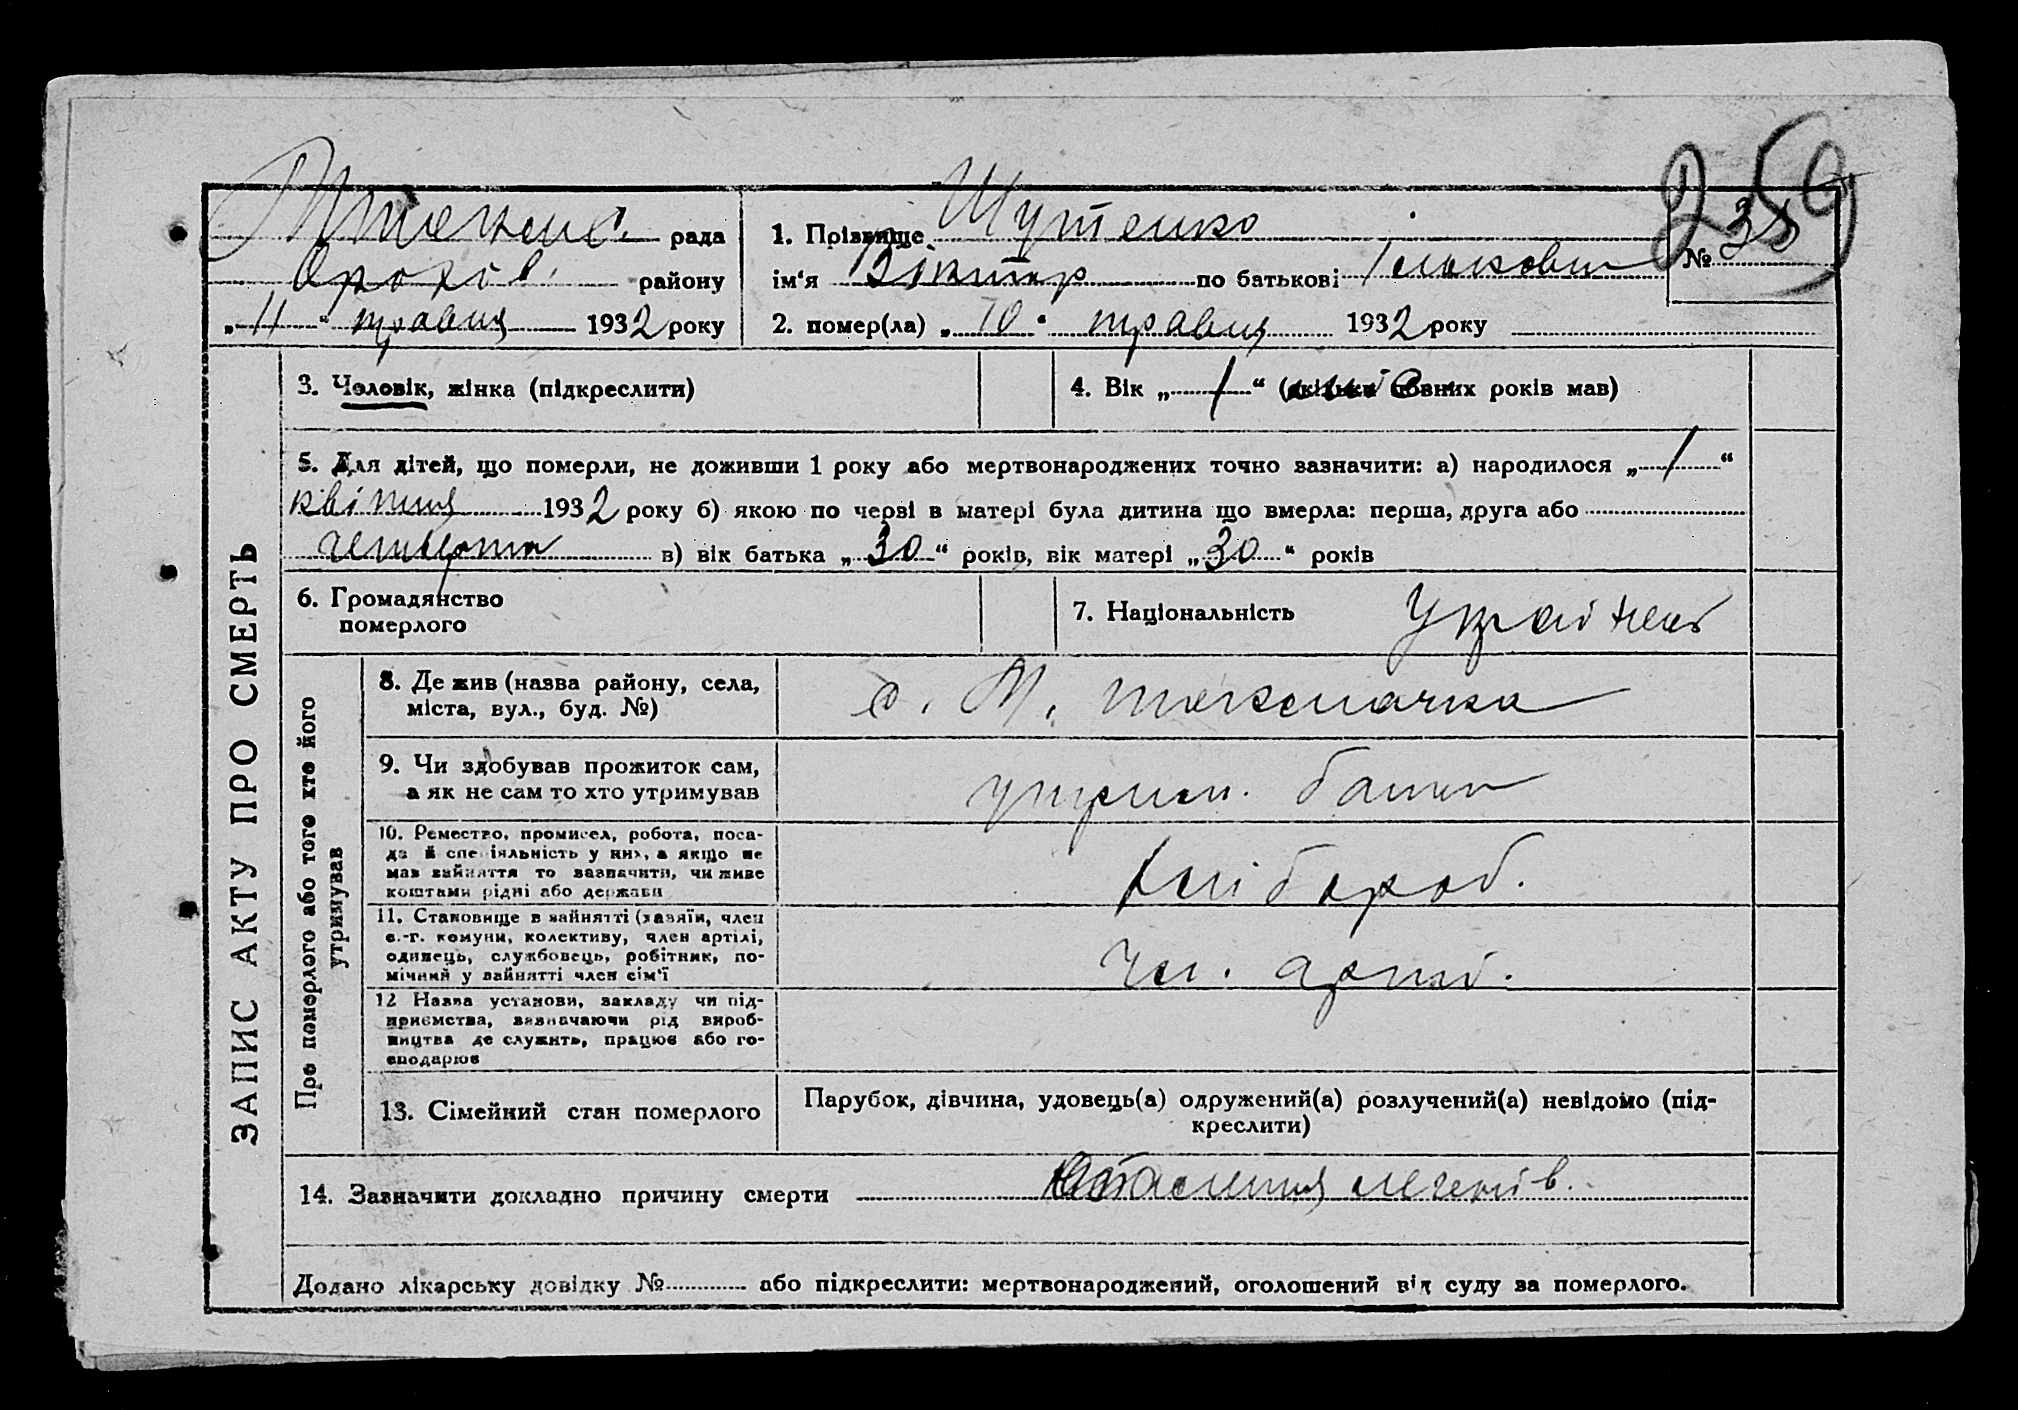 259
М токмас. рада
Оріхів. району
„11“ травня 1932 року
1. Прізвище Шутенко
ім'я Віктор по батькові
№ 38
2. помер(ла) „10“ травня 1932 року
ЗАПИС АКТУ ПРО СМЕРТЬ
3. Чоловік, жінка (підкреслити)
4. Вік „1“ (скільки повних років мав)
5. Для дітей, що померли, не доживши 1 року або мертвонароджених точно зазначити: а) народилося „1“
квітня 1932 року б) якою по черві в матері була дитина що вмерла: перша, друга або
четверта в) вік батька „30“ років, вік матері „30“ років
6. Громадянство
померлого
7. Національність Україней
Про померлого або того хто його
утримував
8. Де жив (назва району, села,
міста, вул., буд. №)
с. М. токмачка
9. Чи здобував прожиток сам,
а як не сам то хто утримував
утрим. батьк
10. Ремество, промисел, робота, поса-
да й спеціяльність у них, а якщо не
мав зайняття то зазначити, чи живе
коштами рідні або держави
хлібороб.
11. Становище в зайнятті (хазяїн, член
с.-г. комуни, колективу, член артілі,
одинець, службовець, робітник, по-
мічний у зайнятті член сім'ї
Чл. артілі.
12 Назва установи, закладу чи під-
приємства, зазначаючи рід вироб-
ництва де служить, працює або го-
сподарює
13. Сімейний стан померлого
Парубок, дівчина, удовець(а) одружений(а) розлучений(а) невідомо (під-
креслити)
14. Зазначити докладно причину смерти легенів.
Додано лікарську довідку № або підкреслити: мертвонароджений, оголошений від суду за померлого.